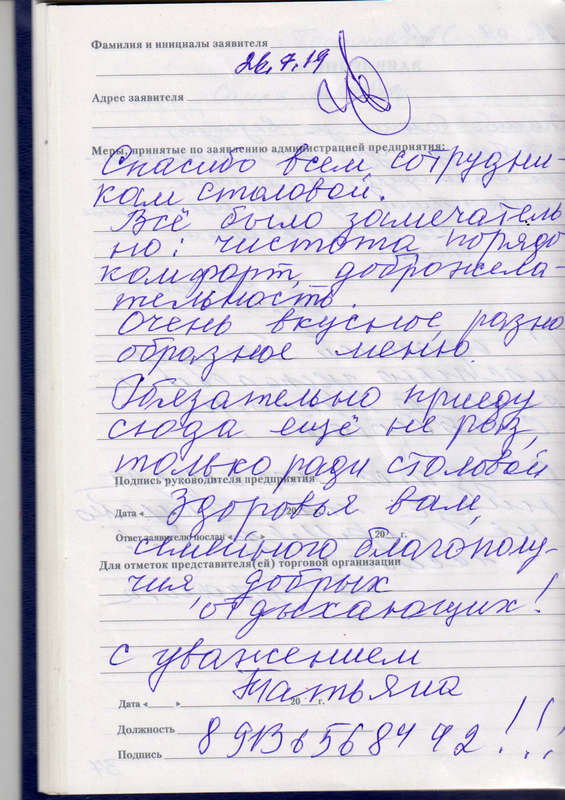 Фамилия и инициалы заявителя
26.7.19
Адрес заявителя
Меры, принятые по заявлению администрацией предприятия:
Спасибо всем сотрудни-
кам столовой.
Всё было замечатель
но: чистота, порядо
комфорт, доброжела-
тельность.
Очень вкусное, разно
образное меню.
Обязательно приеду
сюда ещё не раз,
только ради столовой
Подпись руководителя предприятия
Здоровья вам,
Дата « 20
Ответ заявителю послан « » 20 г.
семейного благополу-
Для отметок представителя(ей) торговой организации
чия, добрых
отдыхающих!
с уважением
Татьяна
Дата « » 20 г.
Должность
89136568442!!!
Подпись